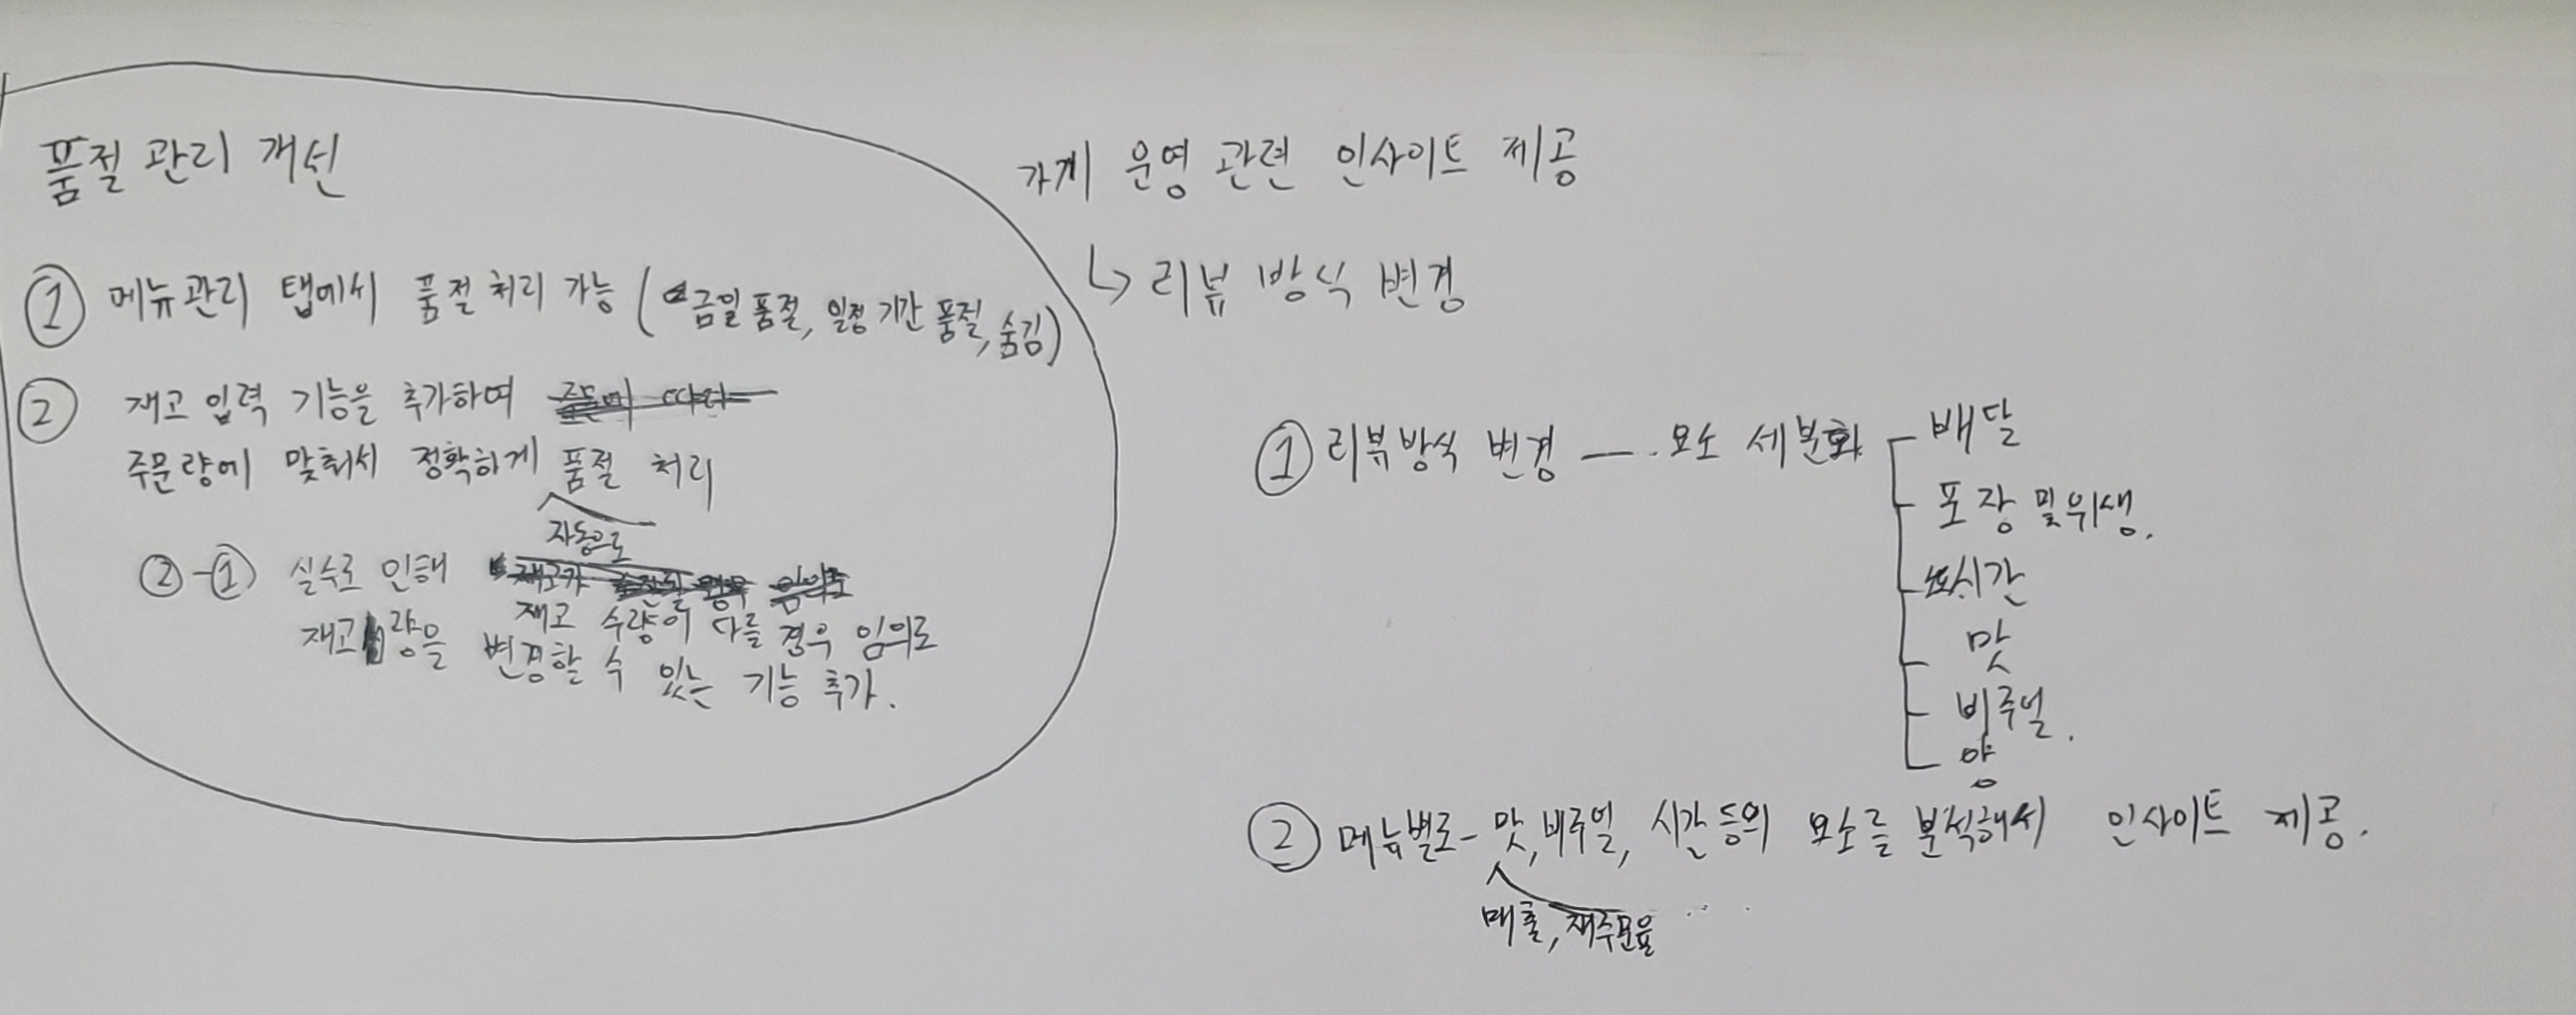 품절 관리 개선
① 메뉴관리 탭에서 품절 처리 가능 (금일 품절, 일정 기간 품절, 숨김)
② 재고 입력 기능을 추가하여
주문량에 맞춰서 정확하게 품절 처리
자동으로
②-① 실수로 인해
재고 수량이 다를 경우 임의로
재고량을 변경할 수 있는 기능 추가.
가게 운영 관련 인사이트 제공
↳ 리뷰 방식 변경
① 리뷰방식 변경 — 요소 세분화
배달
포장 및 위생.
시간
맛
비주얼.
양
② 메뉴별로 - 맛, 비주얼, 시간 등의 요소를 분석해서 인사이트 제공.
매출, 재주문율 ....